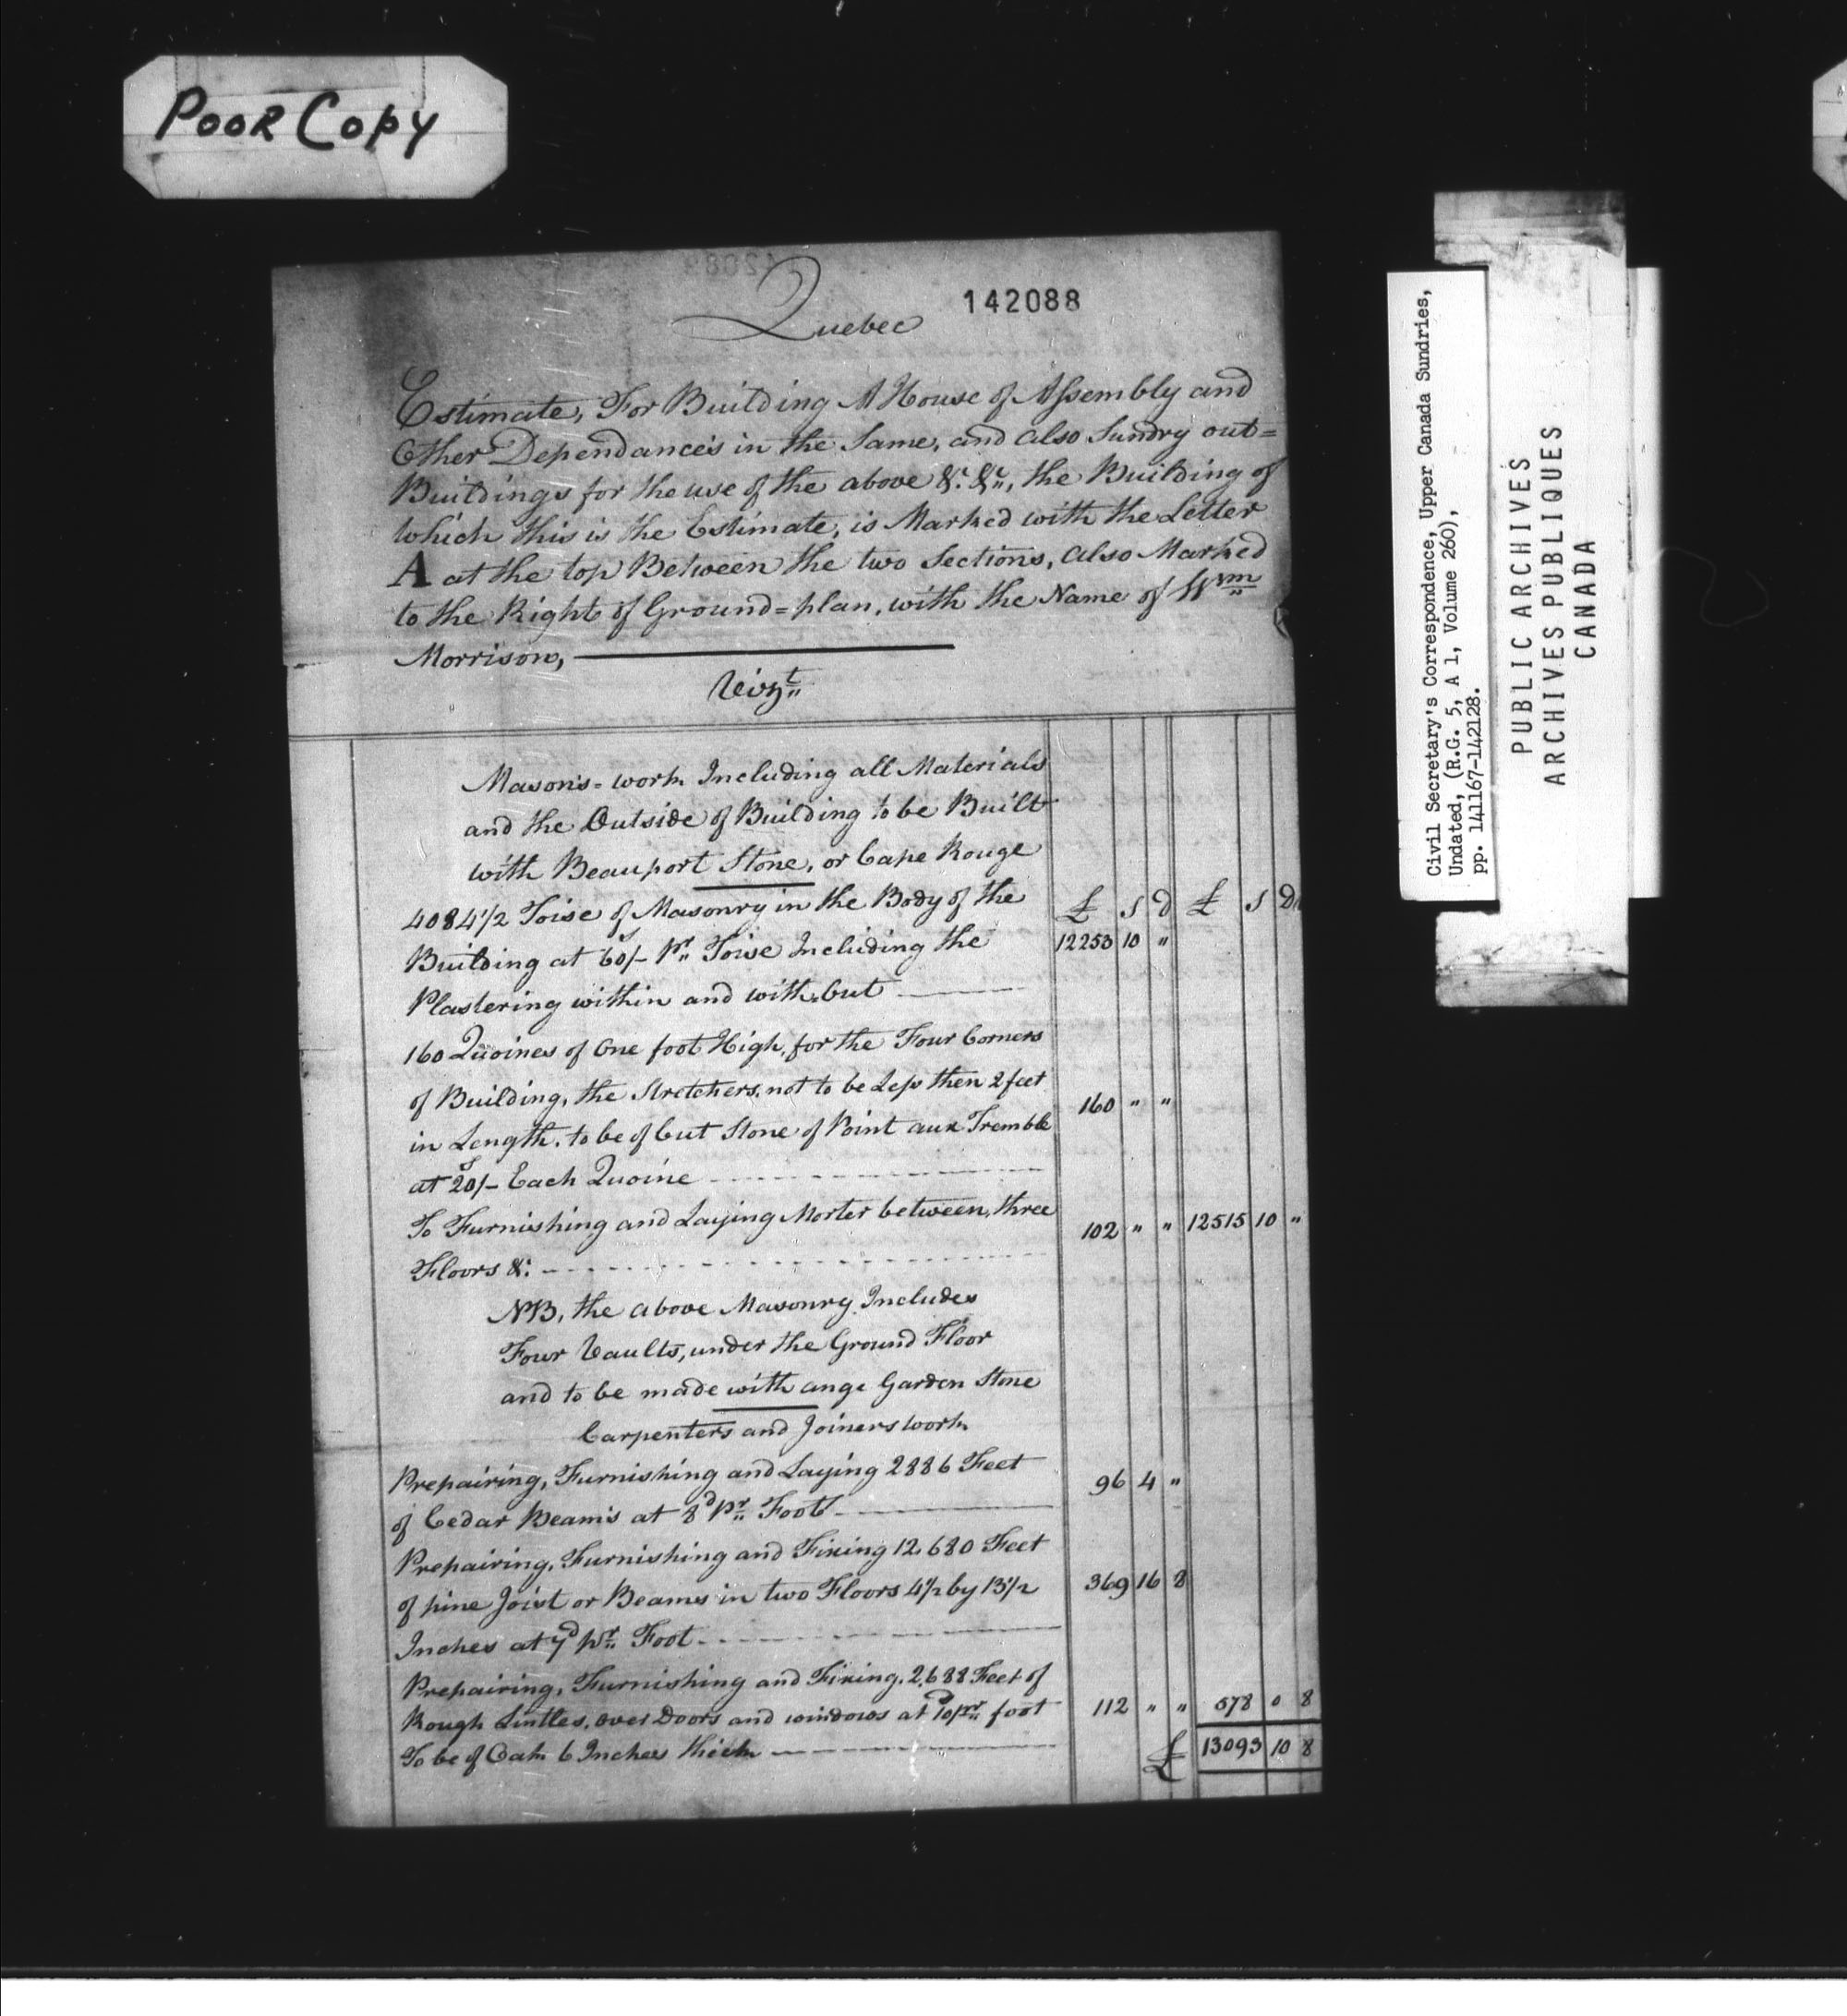 Poor Copy
142088
Quebec
Estimate, For Building A House of Assembly and
Other Dependance's in the Same, and also Sundry out=
Buildings for the use of the above &c. &c., the Building of
which this is the Estimate, is Marked with the Letter
A at the top Between the two Sections, also Marked
to the Right of Ground=plan, with the Name of Wm
Morrison,
Vizt
Mason's=work Including all Materials
and the Outside of Building to be Built
with Beauport Stone, or Cape Rouge
£ S D £ S D
4084 1/2 Toise of Masonry in the Body of the
Building at 60s/- pr Toise Including the 12253 10 "
Plastering within and with,out
160 Quoines of One foot High, for the Four Corners
of Building, the Stretchers, not to be Less then 2 feet
in Length, to be of Cut Stone of Point aux Tremble 160 " "
at 20s/- Each Quoine
To Furnishing and Laying Morter between, three 102 " " 12515 10 "
Floors &c.
NB, the above Masonry Includes
Four Vaults, under the Ground Floor
and to be made with ange Garden Stone
Carpenters and Joiners work
Prepairing, Furnishing and Laying 2886 Feet 96 4 "
of Cedar Beams at 8d pr Foot
Prepairing, Furnishing and Fixing 12,680 Feet
of pine Joist or Beams in two Floors 4 1/2 by 13 1/2 369 16 8
Inches at 7d pr Foot
Prepairing, Furnishing and Fixing, 2,688 Feet of
Rough Lintles, over Doors and windows at 10d pr foot 112 " " 578 0 8
To be of Oak 6 Inches thick £ 13093 10 8
Civil Secretary's Correspondence, Upper Canada Sundries,
Undated, (R.G. 5, A 1, Volume 260),
pp. 141167-142128.
PUBLIC ARCHIVES
ARCHIVES PUBLIQUES
CANADA